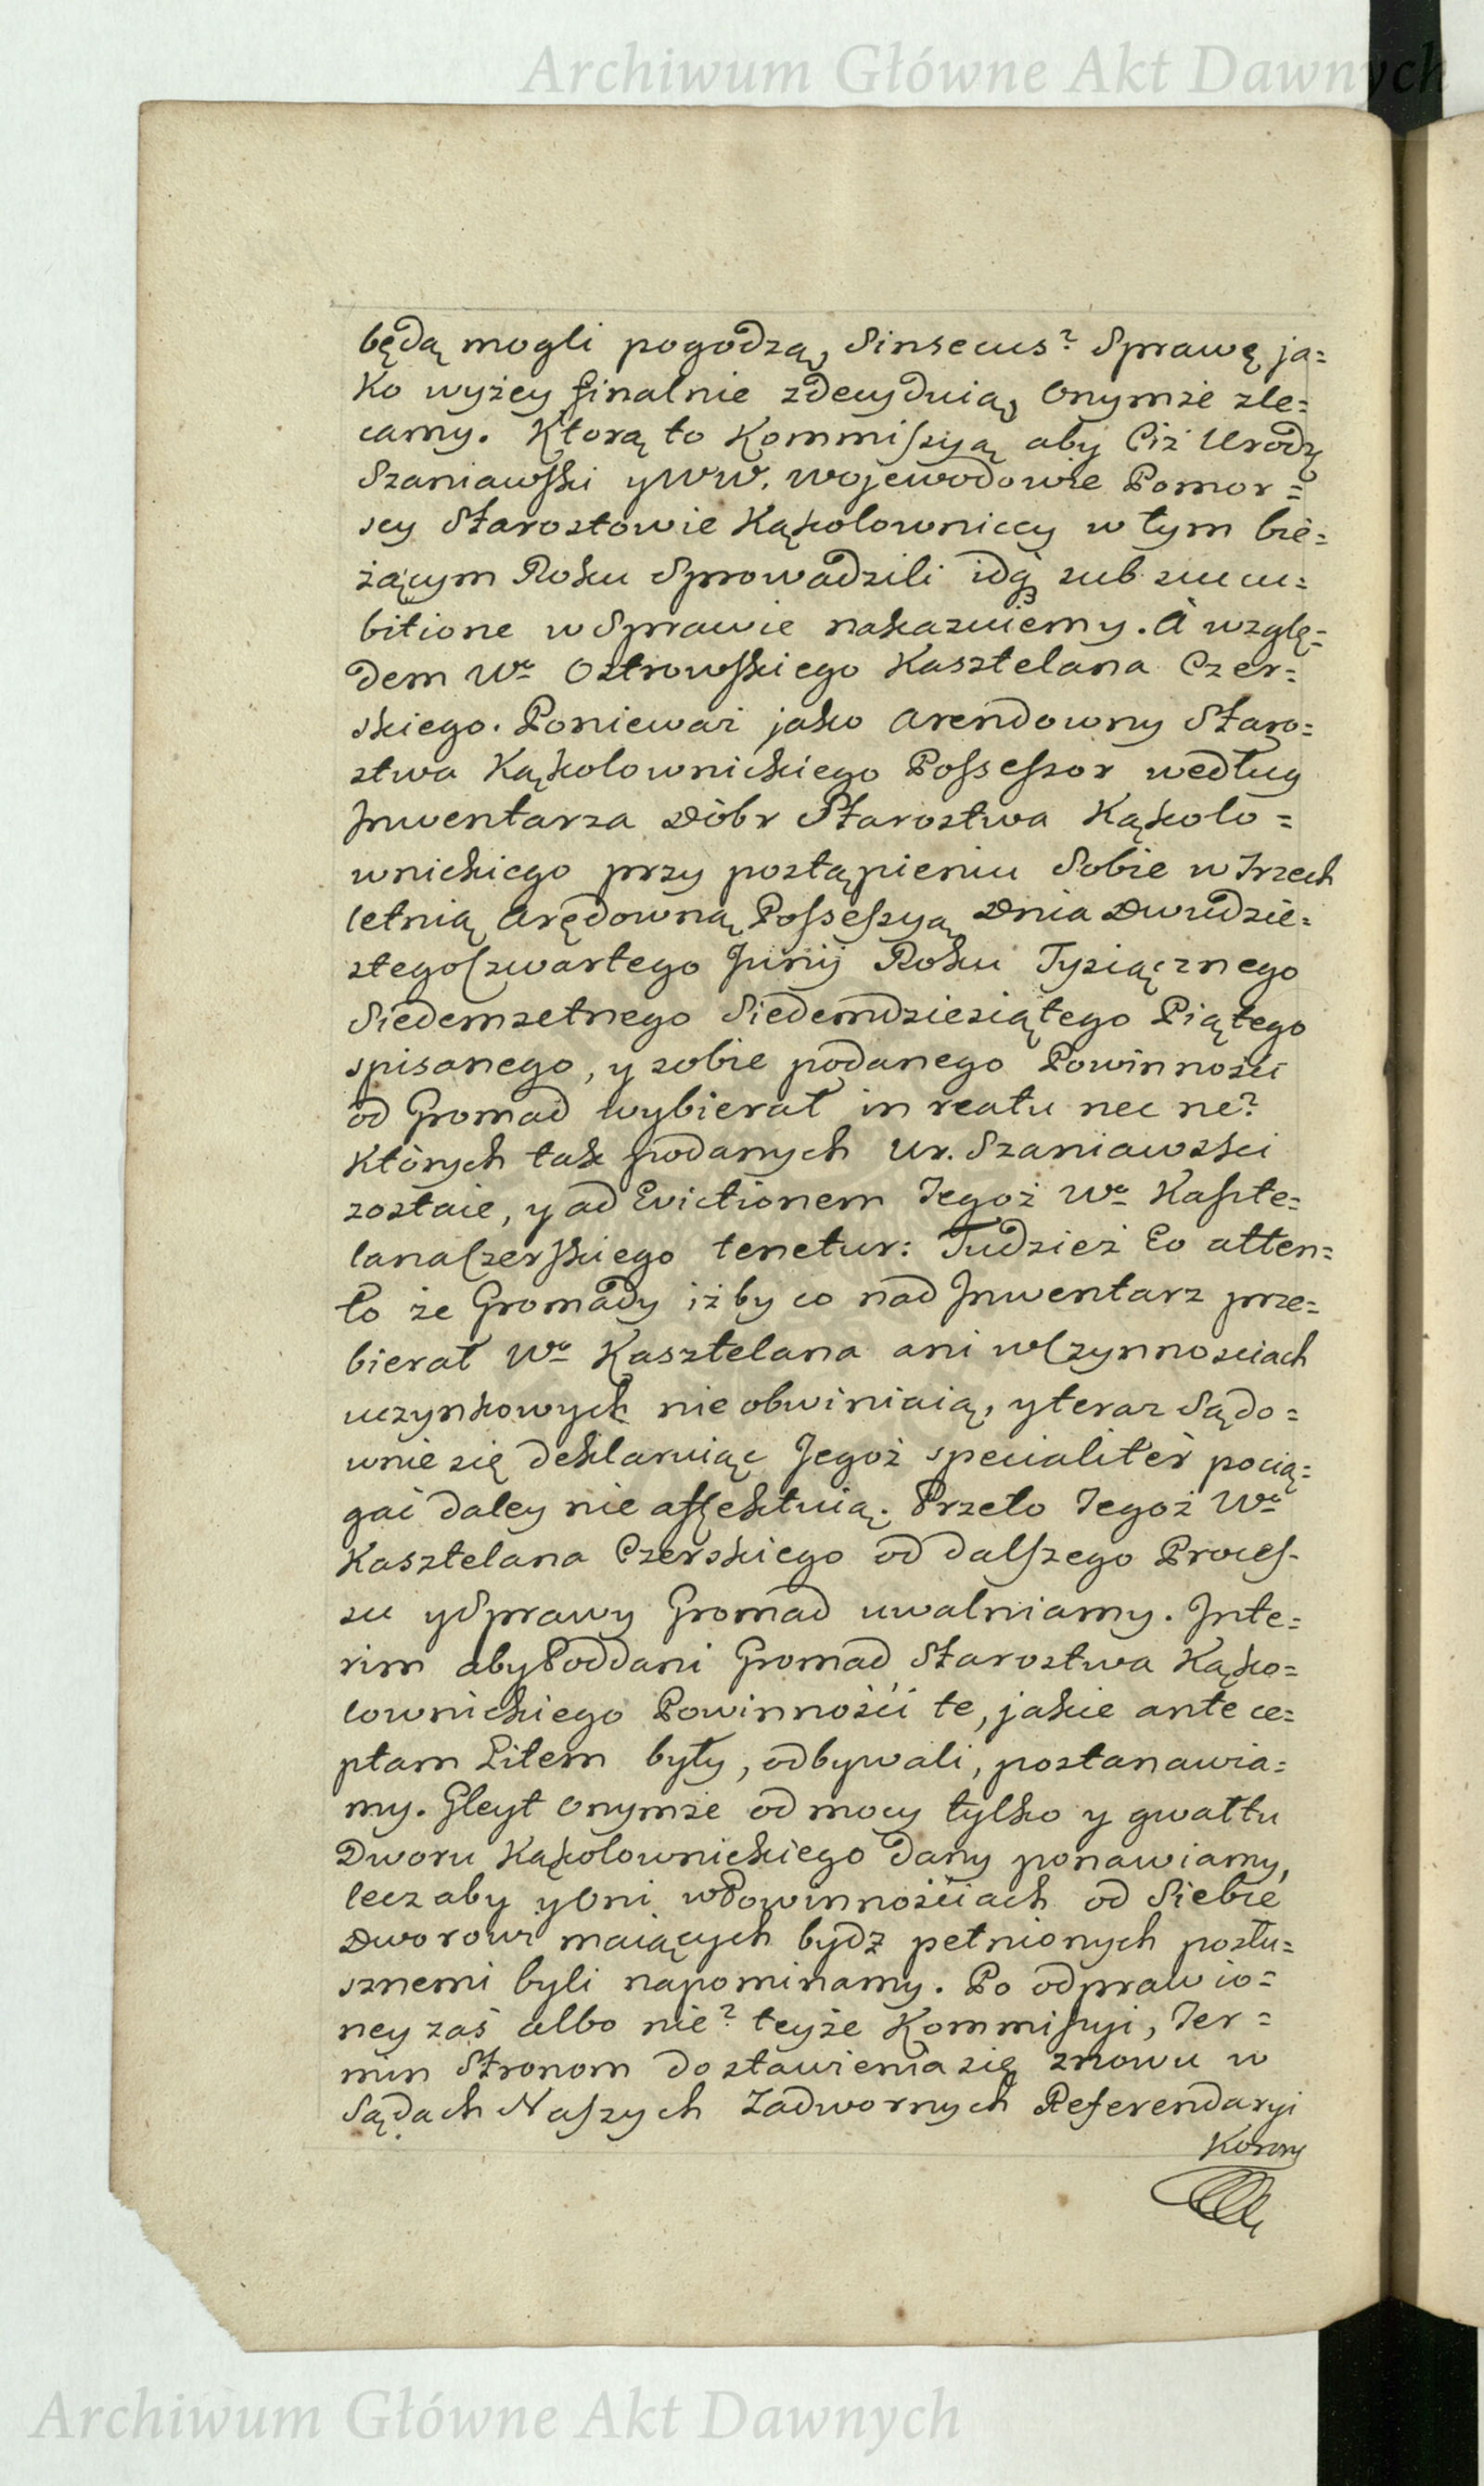 Archiwum Główne Akt Dawnych
będą mogli pogodzą, Sinsecus? Sprawę ja=
ko wyżey finalnie zdecyduią, Onymże zle=
camy. Ktorą to Kommiſsyą aby Ciż Urodz
Szaniawſki y WW. Wojewodowie Pomor=
scy Starostowie Kąkolowniccy w tym bie=
żącym Roku Sprowadzili idq3 sub succu=
bitione w Sprawie nakazuiemy. A wzglę=
dem Wo Ostrowſkiego Kasztelana Czer=
skiego. Ponieważ jako arendowny Staro=
stwa Kąkolownickiego Poſseſsor według
Jnwentarza Dóbr Starostwa Kąkolo=
wnickiego przy postąpieniu Sobie w Trzech
letnią Arędowną Poſseſsyą Dnia Dwudzie=
stego Czwartego Junij Roku Tysiącznego
Siedemsetnego Siedemdziesiątego Piątego
spisanego, y sobie podanego Powinności
od Gromad wybierał in reatu nec ne?
Których tak podanych Ur. Szaniawski
zostaie, y ad Evictionem Tegoż Wo Kaſzte=
lana Czerſkiego tenetur: Tudzież Eo atten=
to że Gromady iżby co nad Jnwentarz prze=
bierał Wo Kasztelana ani w Czynnosciach
uczynkowych nie obwiniaią, y teraz Sądo=
wnie się deklaruiąc Jegoż specialitèr pocią=
gać daley nie affektuią. Przeto Tegoż Wo
Kasztelana Czerskiego od dalſzego Proceſ-
su y Sprawy Gromad uwalniamy. Jnte=
rim aby Poddani Gromad Starostwa Kąko=
lownickiego Powinności te, jakie ante ce=
ptam Litem były, odbywali, postanawia=
my. Gleyt Onymże od mocy tylko y gwałtu
Dworu Kąkolownickiego dany ponawiamy,
lecz aby y Oni w Powinnościach od Siebie
Dworowi maiących bydz pełnionych posłu=
sznemi byli napominamy. Po odprawio=
ney zaś albo nie? teyże Kommiſsyi, Ter=
min Stronom do stawienia się znowu w
Sądach Naſzych Zadwornych Referendaryi
Korony
Archiwum Główne Akt Dawnych